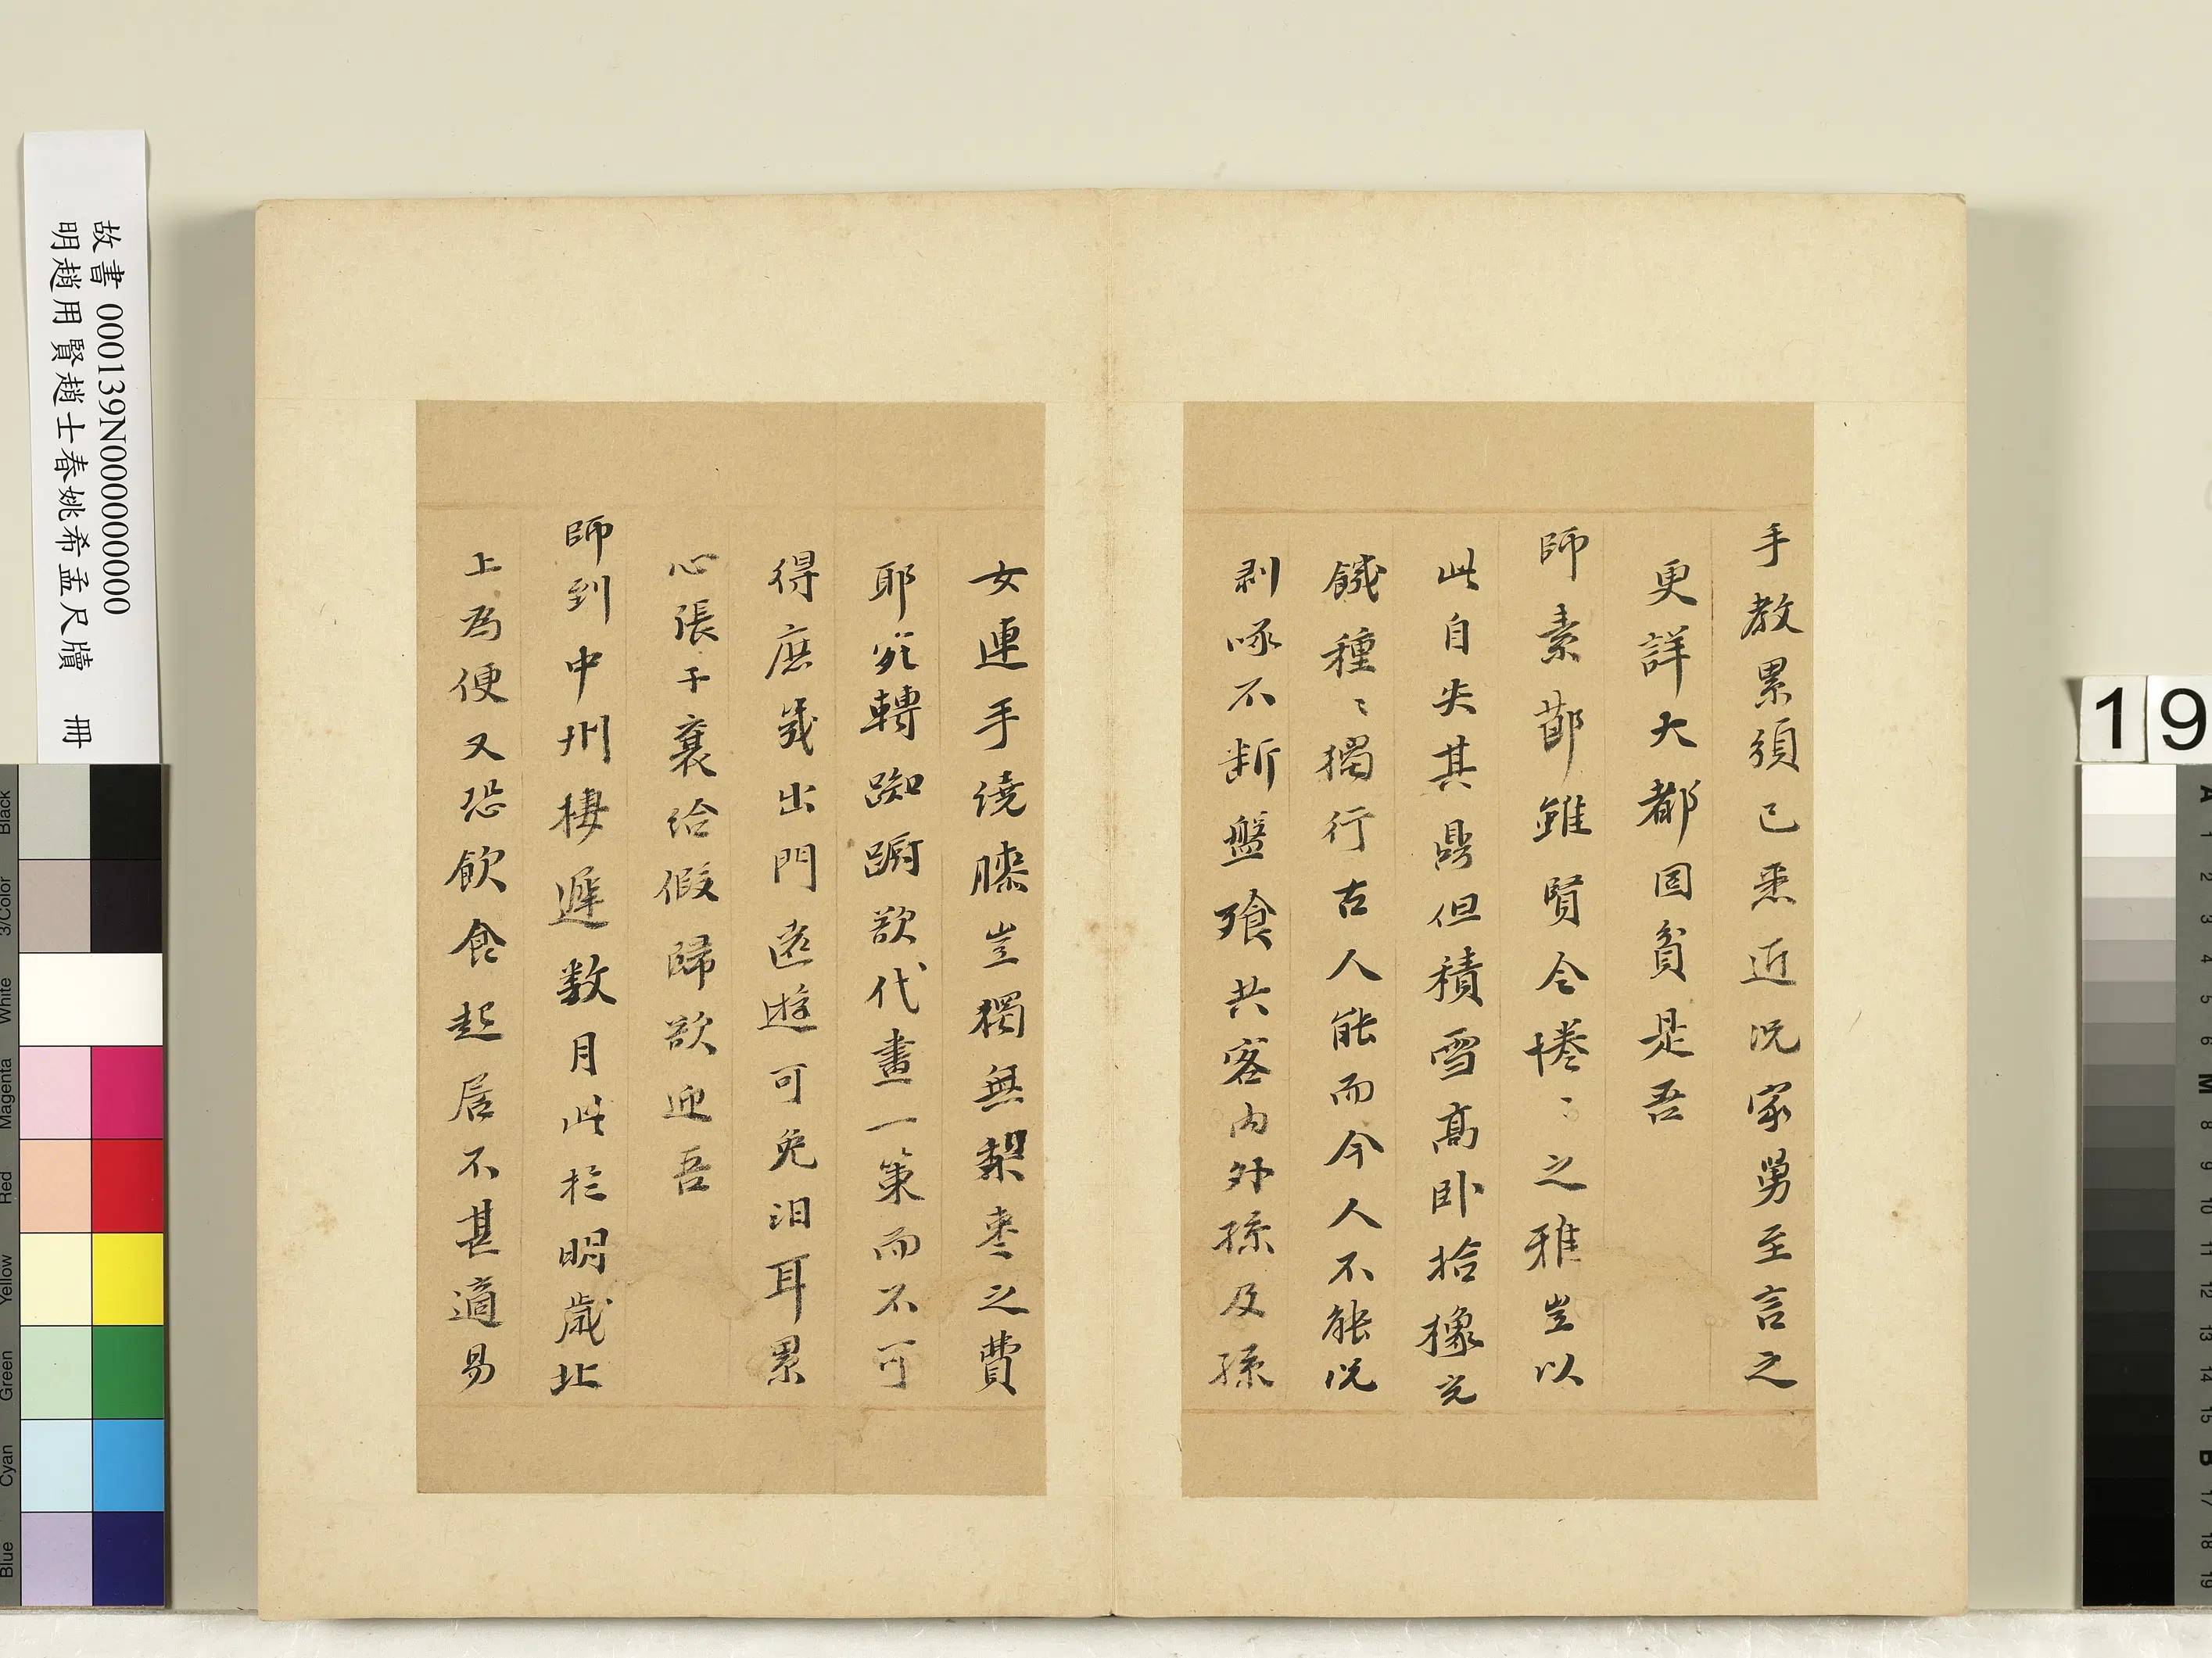 手教累須已悉近况家舅至言之
更詳大都固貧是吾
師素節雖賢令惓〻之雅豈以
此自失其䂓但積雪高卧拾橡充
饑種〻獨行古人能而今人不能况
剥啄不断盤飱共客内外孫及孫
女連手繞膝豈獨無棃枣之費
耶宛轉踟蹰欲代畫一策而不可
得庶幾出門遠遊可免汨耳累
心張子襄給假歸欲迎吾
師到中州棲遲数月此於明歲北
上為便又恐飲食起居不甚適易
故書 000139N000000000
明趙用賢趙士春姚希孟尺牘 冊
19
Black
3/Color
White
Magenta
Red
Yellow
Green
Cyan
Blue
A
1
2
3
4
5
6
M
8
9
10
11
12
13
14
15
B
17
18
19